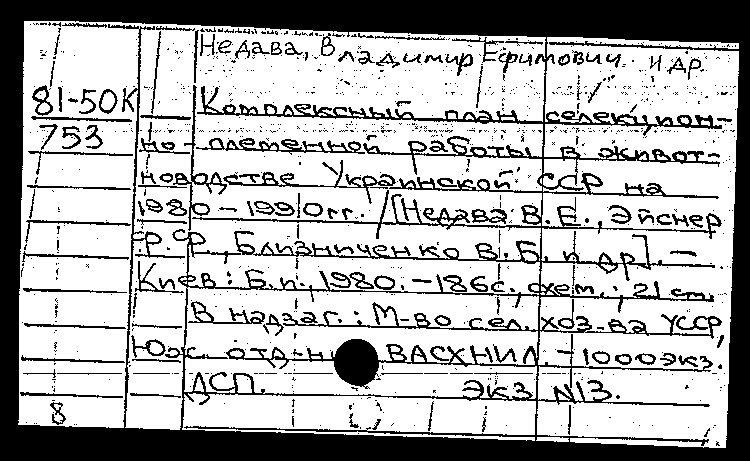 Недава, Владимир Ефимович и др.
81-50К
753
Комплексный план селекцион-
но-племенной работы в живот-
новодстве Украинской ССР на
1980-1990гг. /[Недава В.Е., Эйснер
Ф.Ф., Близниченко В.Б. и др]. —
Киев: Б.и., 1980. - 186с., схем.; 21 см.
В надзаг.: М-во сел. хоз-ва УССР,
Юж. отд-н ВАСХНИЛ. - 1000экз.
ДСП. экз N13.
8